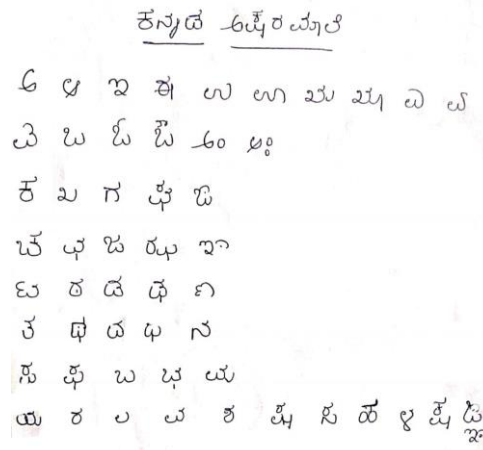 ಕನ್ನಡ ಅಕ್ಷರಮಾಲೆ
ಅ ಆ ಇ ಈ ಉ ಊ ಋ ೠ ಎ ಏ
ಐ ಒ ಓ ಔ ಅಂ ಅಃ
ಕ ಖ ಗ ಘ ಙ
ಚ ಛ ಜ ಝ ಞ
ಟ ಠ ಡ ಢ ಣ
ತ ಥ ದ ಧ ನ
ಪ ಫ ಬ ಭ ಮ
ಯ ರ ಲ ವ ಶ ಷ ಸ ಹ ಳ ಕ್ಷ ಜ್ಞ